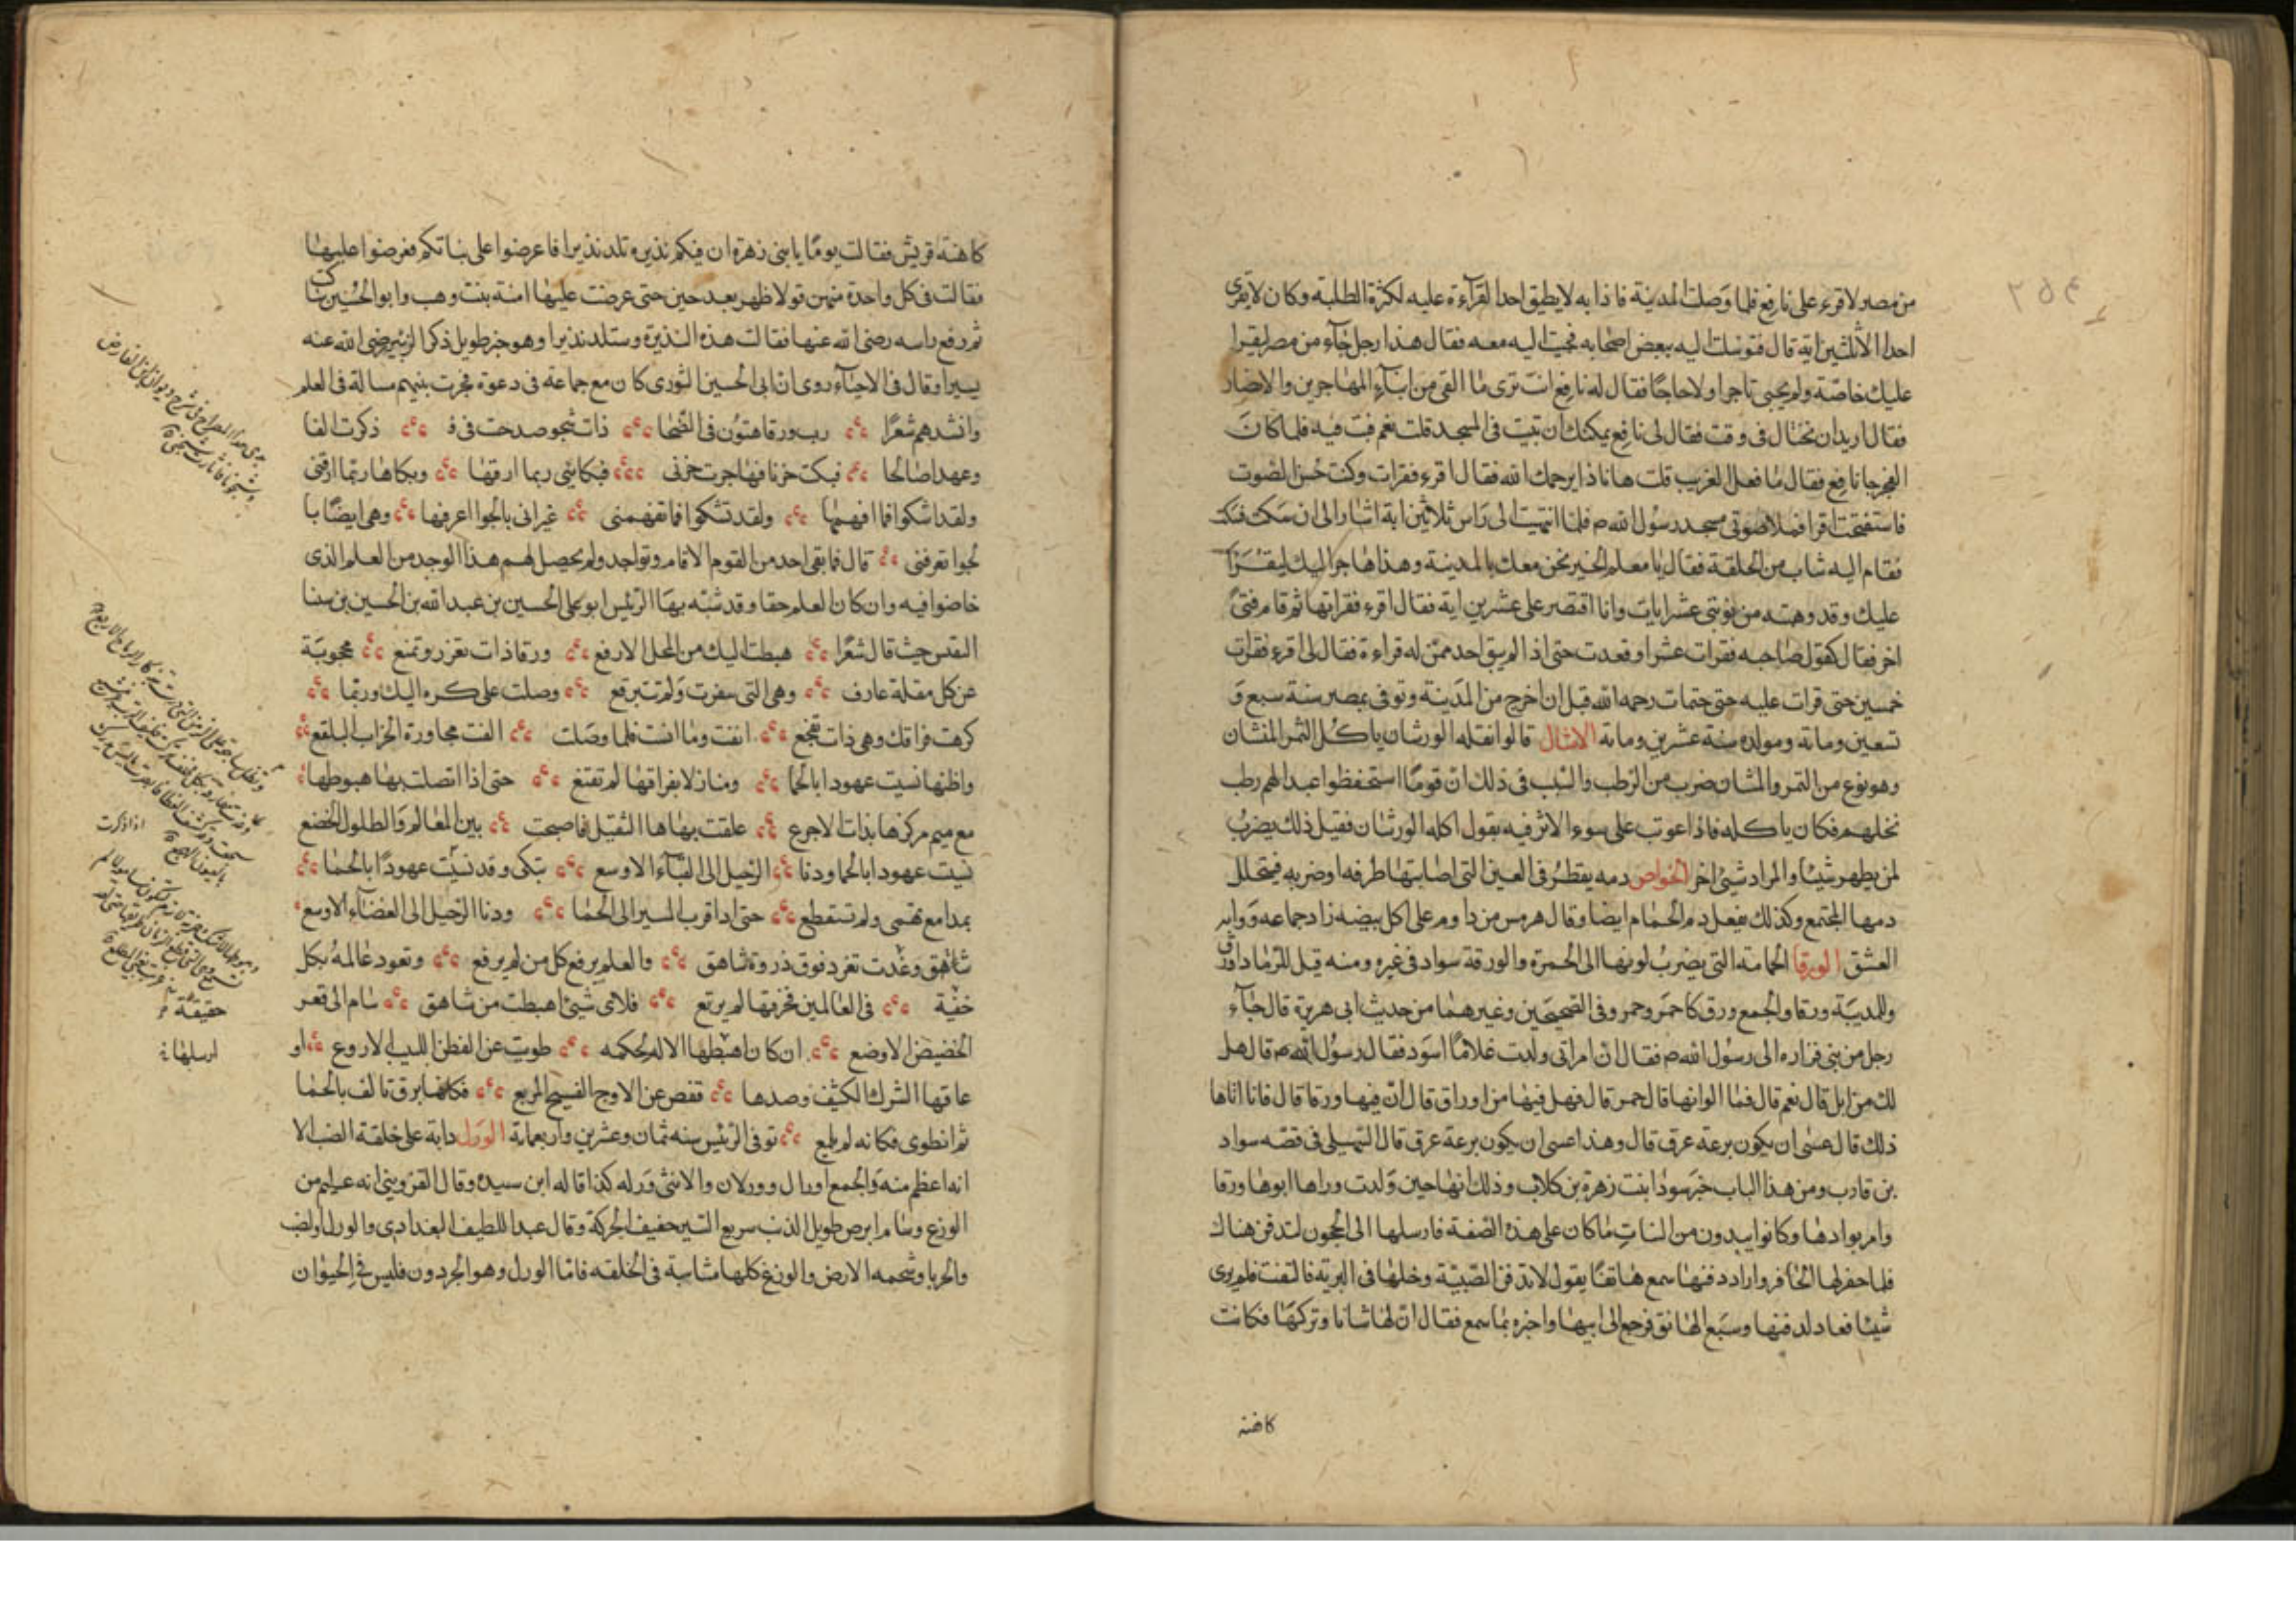 من مصر لاقرء على نافع فلما وصلت المدينة فاذا به لا يطيق احدا لقرآءة عليه لكثرة الطلبة وكان لا يقرى
احدا الا ثلثين اية قال فتوسلت اليه ببعض اصحابه فجيت اليه معه فقال هذا رجل جآء من مصر ليقرا
عليك خاصة ولم يجيى تاجرا ولا حاجا فقال له نافع انت ترى ما القى من ابنآء المهاجرين والانصار
فقال اريد ان تحتال فى وقت فقال لى نافع يمكنك ان تبيت فى المسجد قلت نعم فبت فيه فلما كان
الفجر جا نافع فقال ما فعل الغريب قلت ها نا ذا يرحمك الله فقال اقرء فقرات وكنت حسن الصوت
فاستفتحت اقرا فملا صوتى مسجد رسول الله صم فلما انتهيت الى راس ثلاثين اية اشار الى ان سكت فسكت
فقام اليه شاب من الحلقة فقال يا معلم الخير نحن معك بالمدينة وهذا هاجر اليك ليقرا
عليك وقد وهبته من نوبتى عشر ايات وانا اقتصر على عشرين اية فقال اقرء فقراتها ثم قام فتى
اخر فقال كقول صاحبه فقرات عشرا وقعدت حتى اذا لم يبق احد ممن له قراءة فقال لى اقرء فقرات
خمسين حتى قرات عليه حتى ختمات رحمه الله قبل ان اخرج من المدينة وتوفى بمصر سنة سبع و
تسعين وماىة ومولده سنة عشرين ومائة الامثال قالوا نقله الورشان ياكل الثمر المنشان
وهو نوع من التمر والمشان ضرب من الرطب والسبب فى ذلك ان قوما استحفظوا عبدا لهم رطب
نخلهم فكان ياكله فاذا عوتب على سوء الاثر فيه يقول اكله الورشان فقيل ذلك يضرب
لمن يظهر شيئا والمراد شيئ اخر الخواص دمه يقطر فى العين التى اصابتها طرفه او ضربه فيتحلل
دمها المجتمع وكذلك يفعل دم الحمام ايضا وقال هرمس من داوم على اكل بيضه زاد جماعه وواىر
العشق الورقا الحمامة التى يضرب لونها الى الحمرة والورقة سواد فى غيره ومنه قيل للرماد اورق
وللذيبة ورقا والجمع ورق كاحمر وحمر وفى الصحيحين وغيرهما من حديث ابى هريرة قال جآء
رجل من بنى فزاره الى رسول الله صم فقال ان امراتى ولدت غلاما اسود فقال رسول الله صم قال هل
لك من ابل قال نعم قال فما الوانها قال حمر قال فهل فيها من اوراق قال ان فيها ورقا قال فانا اتاها
ذلك قال عسى ان يكون برعة عرق قال وهذا عسى ان يكون برعة عرق قال السهيلى فى قصه سواد
بن قارب ومن هذا الباب خبر سودا بنت زهرة بن كلاب وذلك انها حين ولدت وراها ابوها ورقا
وامر بوادها وكانوا يبدون من البنات ما كان على هذه الصفة فارسلها الى الحجون لتدفن هناك
فلما حفر لها الحافر واراد دفنها سمع هاتفا يقول لا تدفن الصبية وخلها فى البرية فالتفت فلم يرى
شيئا فعاد لدفنها وسمع الهاتف فرجع الى ابيها واخبره بما سمع فقال ان لها شانا وتركها فكانت
كاهنة
كاهنة قريش فقالت يوما يا بنى زهرة ان فيكم نذيره تلد نذيرا فاعرضوا على بناتكم فعرضوا عليها
فقالت فى كل واحدة منهن قولا ظهر بعد حين حتى عرضت عليها امنة بنت وهب وابو الحسين ساكت
ثم رفع راسه رضى الله عنها فقالت هذه النذيرة وستلد نذيرا وهو خبر طويل ذكر الزبير رضى الله عنه
يسيرا وقال فى الاحيآء روى ان ابى الحسين الثورى كان مع جماعة فى دعوة فجرت بينهم مسالة فى العلم
وانشدهم شعرا رب ورقا هتون فى الضحا ذات شجو صدحت فى ذكرت الفا
وعهدا صالحا فبكت حزنا فهاجرت حزنى فبكائى ربما ارقها وبكاها ربما ارقنى
ولقد اشكوا فما افهمها ولقد تشكوا فما تفهمنى غير انى بالجوا اعرفها وهى ايضا با
لجوا تعرفنى قال فما بقى احد من القوم الا قام وتواجد ولم يحصل لهم هذا الوجد من العلم الذى
خاضوا فيه وان كان العلم حقا وقد شبه بها الرئيس ابو على الحسين بن عبد الله بن الحسين بن سنا
النفس حيث قال شعرا هبطت اليك من المحل الارفع ورقا ذات تعزز وتمنع محجوبة
عن كل مقلة عارف وهى التى سفرت ولم تتبرقع وصلت على كره اليك وربما
كرهت فراقك وهى ذات تفجع انفت وما انفت فلما وصلت الفت مجاورة الخراب البلقع
واظنها نسيت عهودا بالحما ومنازلا بفراقها لم تقنع حتى اذا اتصلت بها هبوطها
مع ميم مركزها بذات الاجرع علقت بها ها الثقيل فاصبحت بين المعالم والطلول الخضع
نسيت عهودا بالحما ودنا الرحيل الى الفضآء الاوسع تبكى وقد نسيت عهودا بالحما
بمدامع تهمى ولم تتقطع حتى اذا قرب المسير الى الحما ودنا الرحيل الى الفضآء الاوسع
شاهق وغدت تغرد فوق ذروة شاهق والعلم يرفع كل من لم يرفع وتعود عالمة بكل
خفية فى العالمين فخرقها لم يرقع فلاى شيئ اهبطت من شاهق سام الى قعر
الحضيض الاوضع ان كان اهبطها الاله لحكمه طويت عن الفطن اللبيب الاروع او
عاقها الشرك الكثيف وصدها قفص عن الاوج الفسيح المربع فكانها برق تالف بالحما
ثم انطوى فكانه لم يلمع توفى الرئيس سنه ثمان وعشرين واربعماىة الورل دابة على خلقة الضب الا
انه اعظم منه والجمع اورال وورلان والانثى ورله كذا قاله ابن سيده وقال القزوينى انه عظيم من
الوزغ وسام ابرص طويل الذنب سريع السير خفيف الحركة وقال عبد اللطيف البغدادى والورل والضب
والحربا وشحمه الارض والوزغ كلها متناسبة فى الخلقه فاما الورل وهو الجردون فليس فى الحيوان
اذا ذكرت
حقيقة
ارسلها